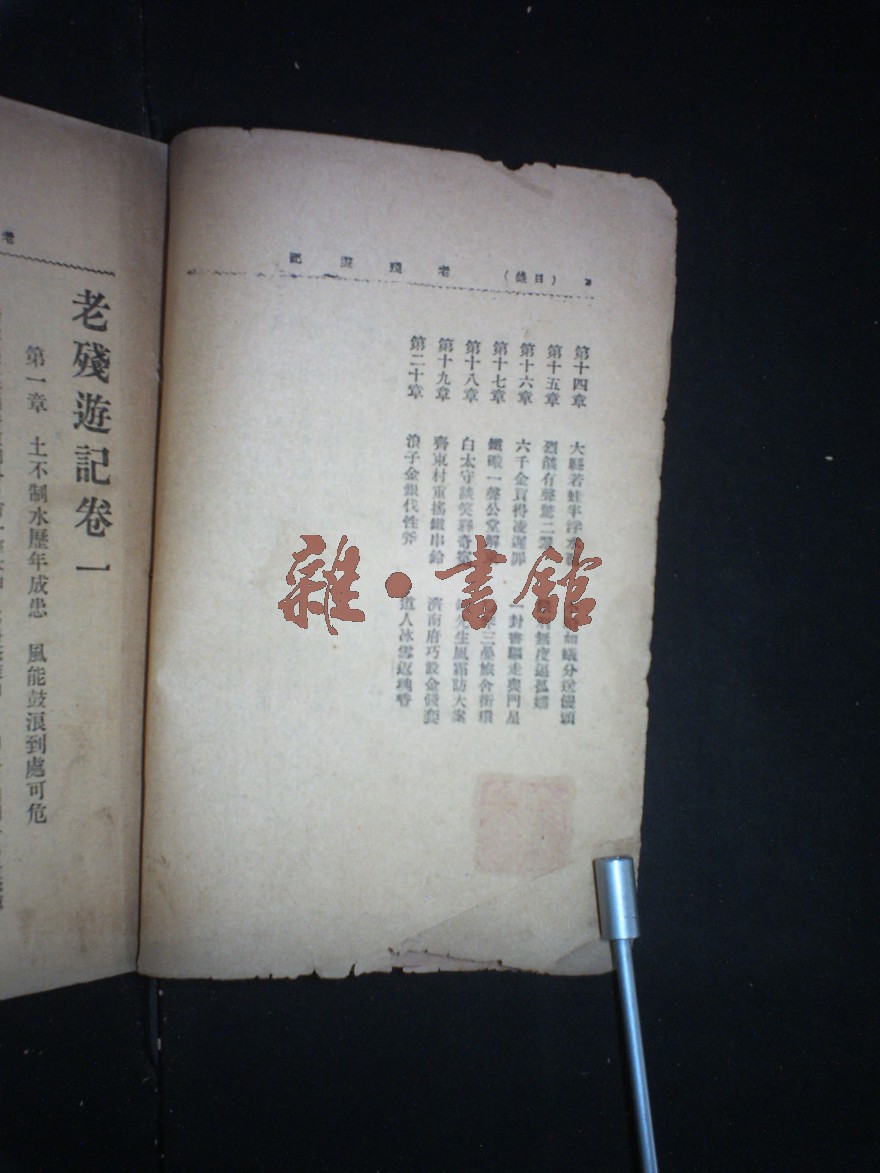 老殘遊記 (目錄) 2
第十四章 大縣若蛙半浮水 蟻分送饅頭
第十五章 烈燄有聲驚二 無度逼孤孀
第十六章 六千金買得凌遲罪 一封書驅走喪門星
第十七章 鐵礮一聲公堂解 三疊旅舍銜環
第十八章 白太守談笑釋奇 先生風霜訪大案
第十九章 齊東村重搖鐵串鈴 濟南府巧設金錢套
第二十章 浪子金銀伐性斧 道人冰雪返魂香
老
老殘遊記卷一
第一章 土不制水歷年成患 風能鼓浪到處可危
雜・書館